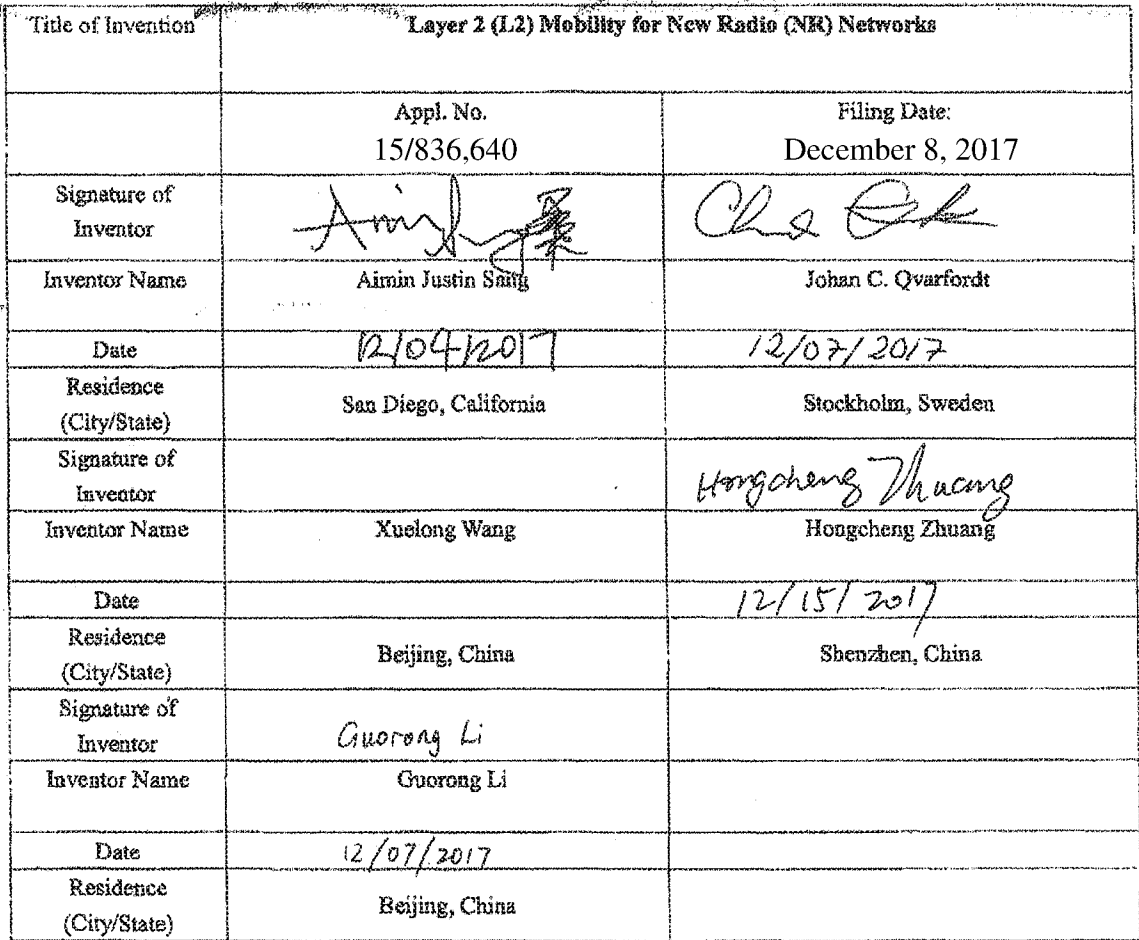 Title of Invention Layer 2 (L2) Mobility for New Radio (NR) Networks
Appl. No. Filing Date:
15/836,640 December 8, 2017
Signature of
Inventor
Inventor Name Aimin Justin Sang Johan C. Qvarfordt
Date 12/04/2017 12/07/2017
Residence
(City/State) San Diego, California Stockholm, Sweden
Signature of
Inventor Hongcheng Zhuang
Inventor Name Xuelong Wang Hongcheng Zhuang
Date 12/15/2017
Residence
(City/State) Beijing, China Shenzhen, China
Signature of
Inventor Guorong Li
Inventor Name Guorong Li
Date 12/07/2017
Residence
(City/State) Beijing, China